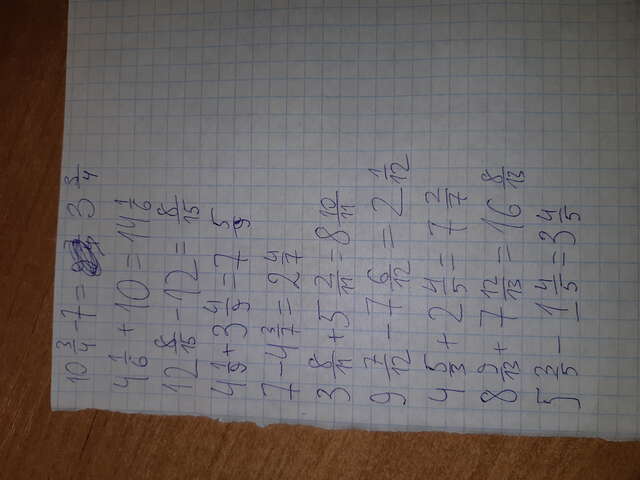 10 3/4 - 7 = 3 3/4
4 1/6 + 10 = 14 1/6
12 8/15 - 12 = 8/15
4 1/9 + 3 4/9 = 7 5/9
7 - 4 3/7 = 2 4/7
3 8/11 + 5 2/11 = 8 10/11
9 7/12 - 7 6/12 = 2 1/12
4 5/7 + 2 4/5 = 7 2/7
8 9/13 + 7 12/13 = 16 8/13
5 3/5 - 1 4/5 = 3 4/5